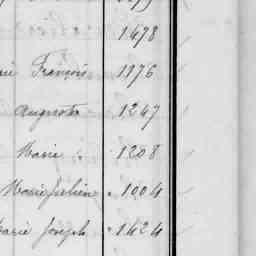 1478
François 1176
Auguste 1247
Marie 1208
Marie Julien 1004
Marie Joseph 1424